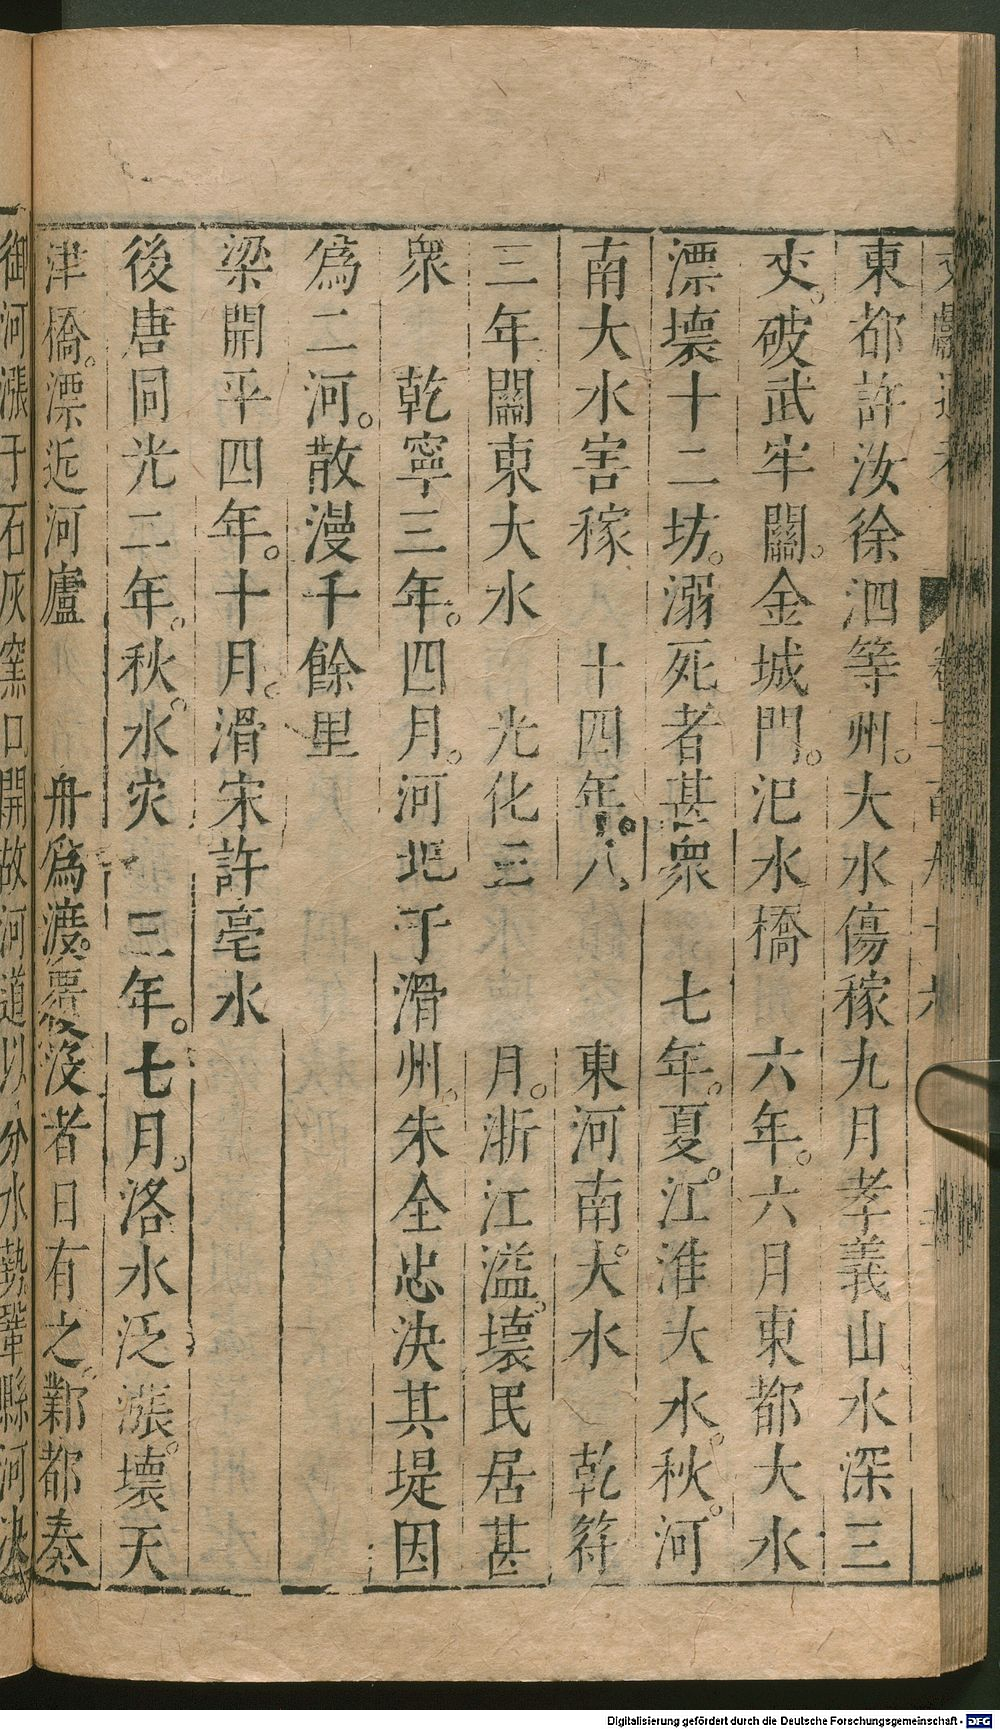 東都許汝徐泗等州。大水傷稼九月孝義山水深三
丈。破武牢關。金城門。汜水橋 六年。六月東都大水
漂壞十二坊。溺死者甚衆 七年。夏。江淮大水。秋。河
南大水害稼 十四年。八 東河南。大水 乾符
三年關東大水 光化三 月。浙江溢。壞民居甚
衆 乾寧三年。四月。河圮于滑州。朱全忠決其堤因
爲二河。散漫千餘里
梁開平四年。十月。滑宋許亳水
後唐同光二年。秋。水灾 三年。七月。洛水泛漲。壞天
津橋。漂近河廬 舟爲渡。覆没者日有之。鄴都奏
御河漲于石灰窯口開故河道以分水勢鞏縣河決
Digitalisierung gefördert durch die Deutsche Forschungsgemeinschaft - DFG